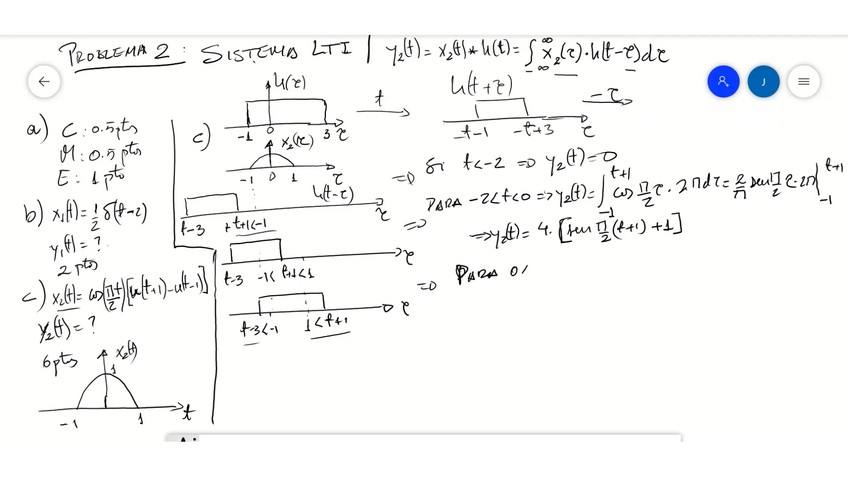 PROBLEMA 2 : SISTEMA LTI / y₂(t) = x₂(t) * h(t) = ∫_{-∞}^{∞} x₂(τ)·h(t-τ)dτ
a) C : 0.5 pts
M : 0.5 pts
E : 1 pto
b) x₁(t) = 1/2 δ(t-2)
y₁(t) = ?
2 pts
c) x₂(t) = cos(πt/2)[u(t+1) - u(t-1)]
y₂(t) = ?
6 pts
x₂(t)
1
-1 1 t
c)
h(τ)
-1 0 3 τ
t
h(t+τ)
-t-1 -t+3 τ
-τ
x₂(τ)
-1 0 1 τ
h(t-τ)
t-3 t+1<-1 τ
t-3 -1< t+1<1 τ
t-3<-1 1<t+1 τ
⇒ Si t<-2 ⇒ y₂(t) = 0
⇒ PARA -2<t<0 ⇒ y₂(t) = ∫_{-1}^{t+1} cos π/2 τ · 2π dτ = 2/π sen π/2 τ · 2π |_{-1}^{t+1}
⇒ y₂(t) = 4·[sen π/2 (t+1) + 1]
⇒ PARA 0
J